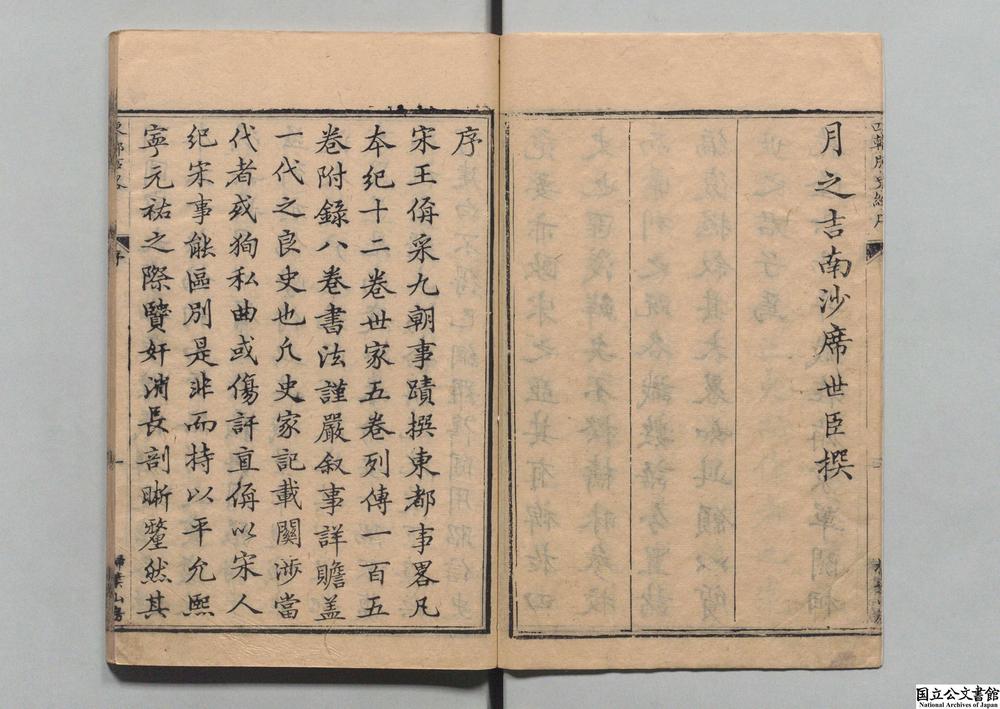 月之吉南沙席世臣撰
序
宋王偁采九朝事蹟撰東都事畧凡
本紀十二卷世家五卷列傳一百五
卷附錄八卷書法謹嚴叙事詳贍盖
一代之良史也凢史家記載關涉當
代者或狥私曲或傷訐直偁以宋人
紀宋事能區別是非而持以平允熙
寧元祐之際賢奸消長剖晰釐然其
掃葉山房
国立公文書館
National Archives of Japan